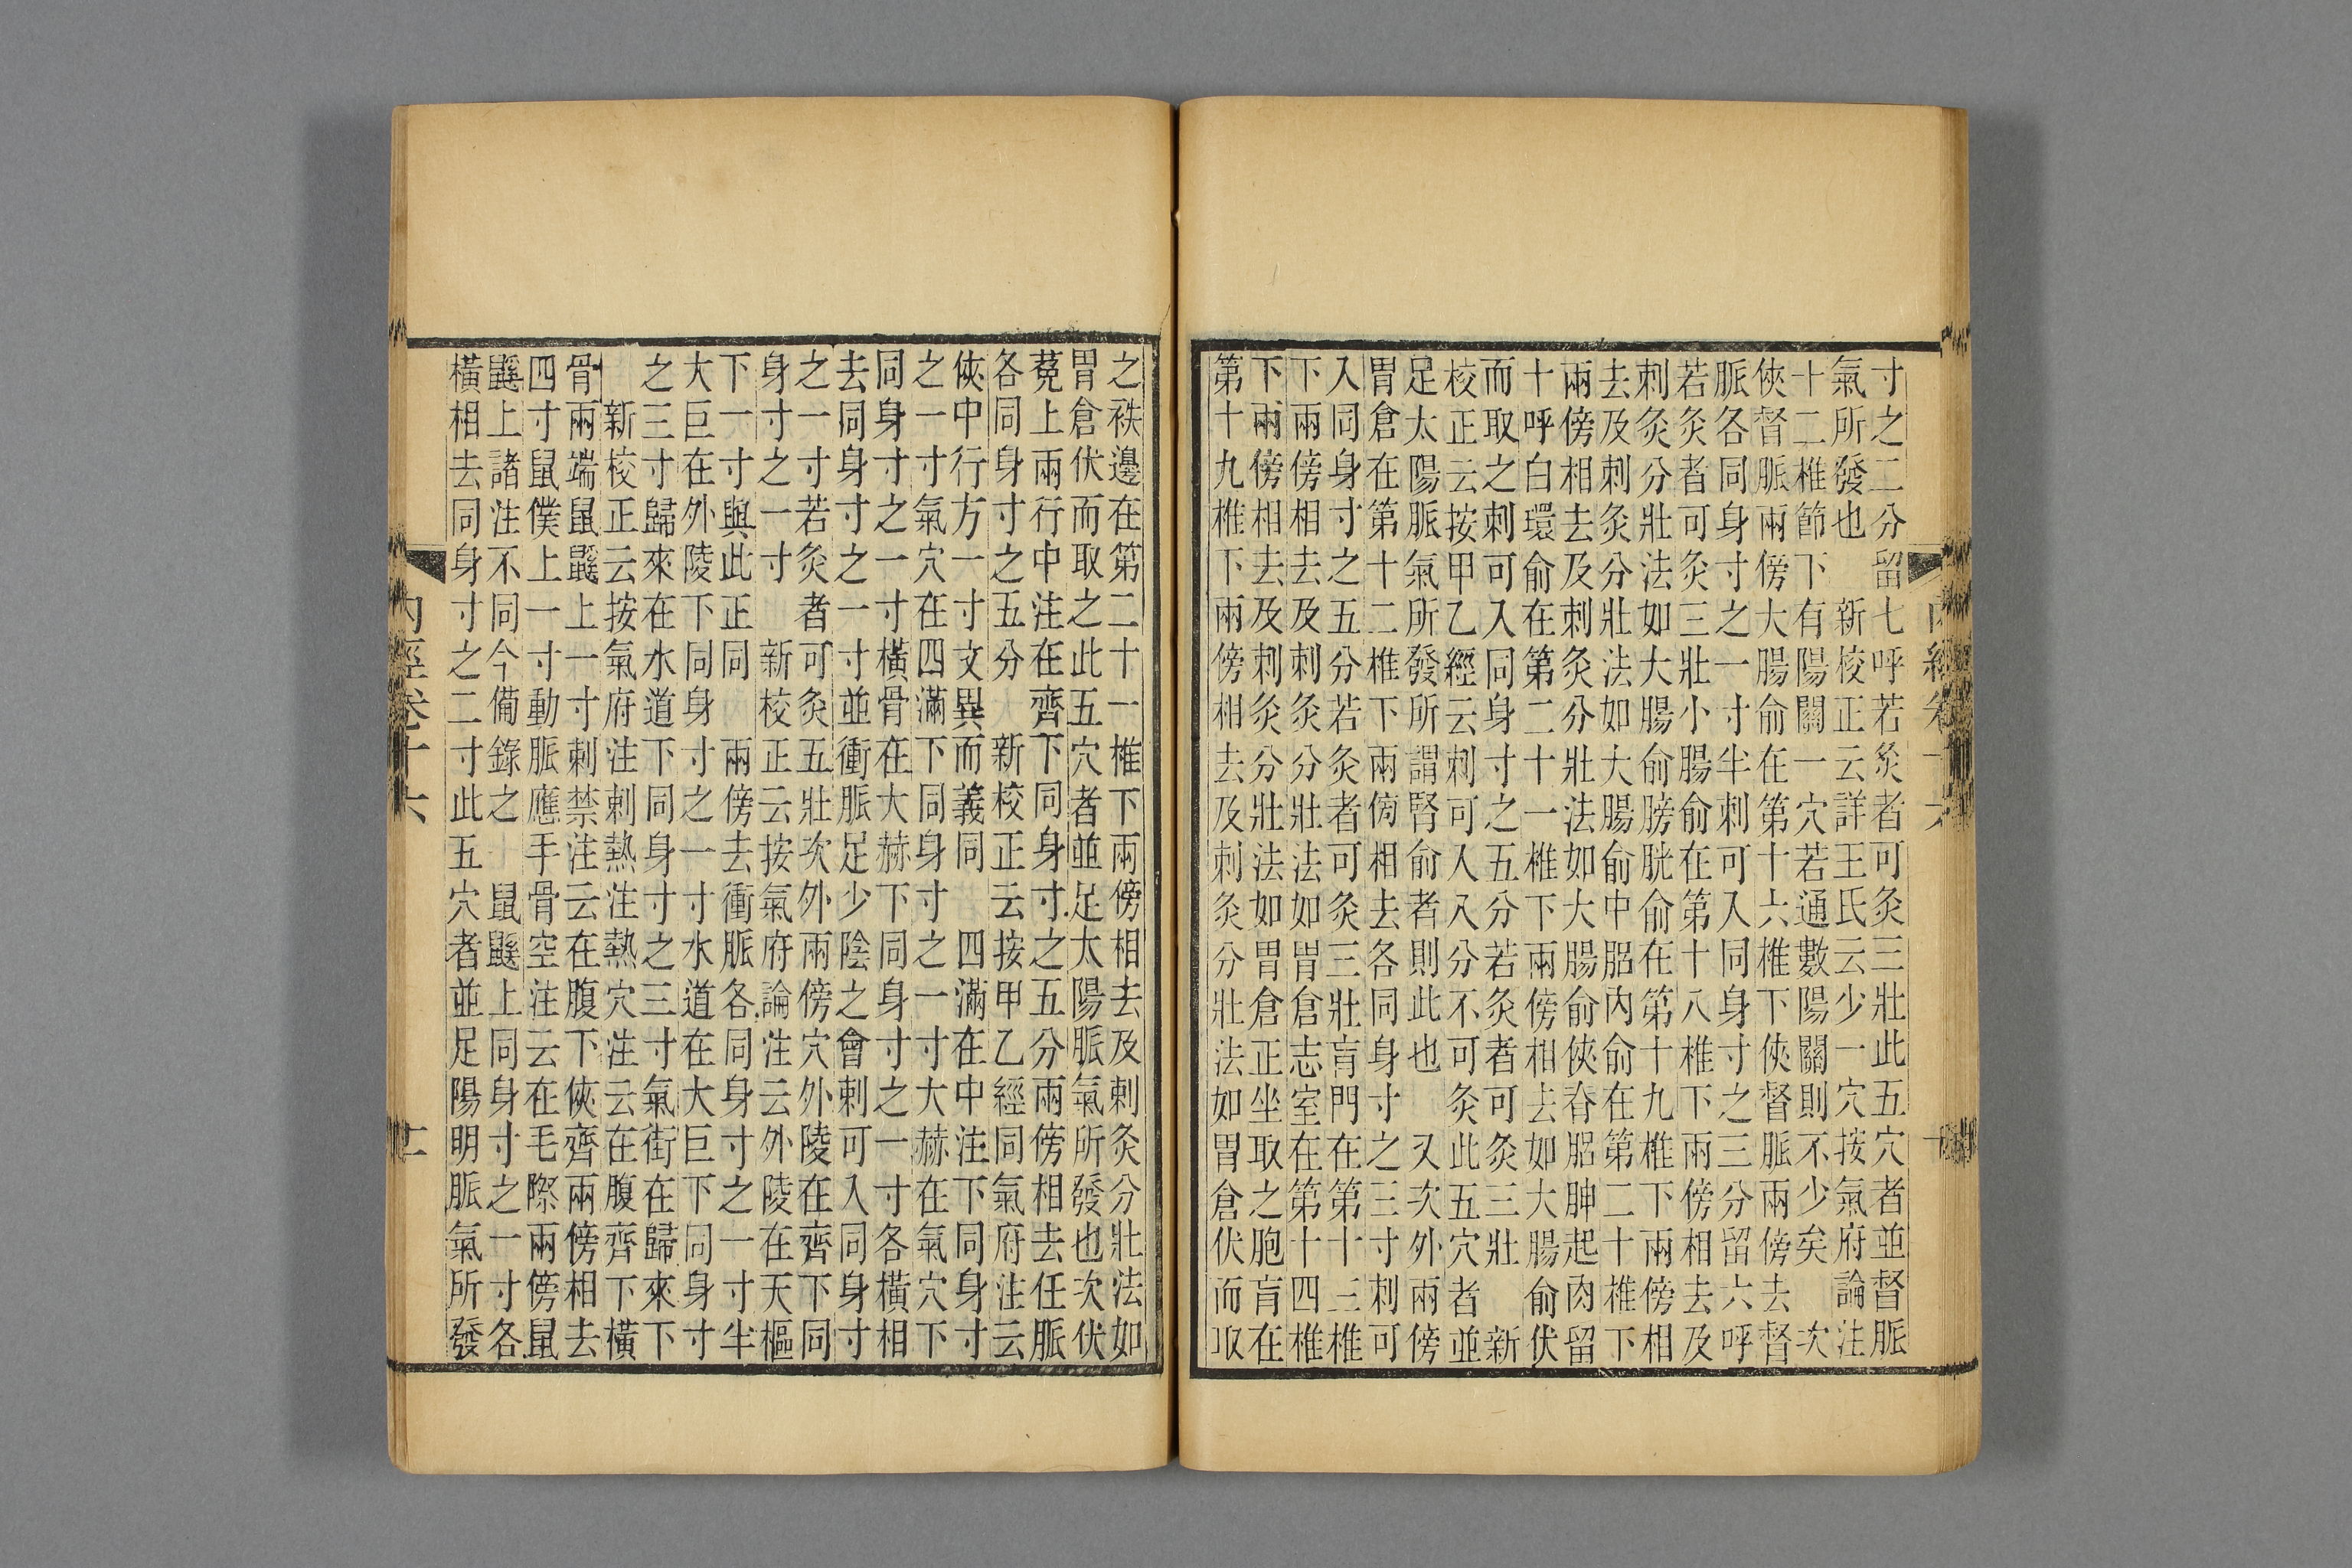 寸之二分留七呼若灸者可灸三壯此五穴者並督脈
氣所發也　新校正云詳王氏云少一穴按氣府論注
十二椎節下有陽關一穴若通數陽關則不少矣　次
俠督脈兩傍大腸俞在第十六椎下俠督脈兩傍去督
脈各同身寸之一寸半刺可入同身寸之三分留六呼
若灸者可灸三壯小腸俞在第十八椎下兩傍相去及
刺灸分壯法如大腸俞膀胱俞在第十九椎下兩傍相
去及刺灸分壯法如大腸俞中䏚內俞在第二十椎下
兩傍相去及刺灸分壯法如大腸俞俠脊䏚胂起肉留
十呼白環俞在第二十一椎下兩傍相去如大腸俞伏
而取之刺可入同身寸之五分若灸者可灸三壯　新
校正云按甲乙經云刺可入八分不可灸此五穴者並
足太陽脈氣所發所謂腎俞者則此也　又次外兩傍
胃倉在第十二椎下兩傍相去各同身寸之三寸刺可
入同身寸之五分若灸者可灸三壯肓門在第十三椎
下兩傍相去及刺灸分壯法如胃倉志室在第十四椎
下兩傍相去及刺灸分壯法如胃倉正坐取之胞肓在
第十九椎下兩傍相去及刺灸分壯法如胃倉伏而取
之秩邊在第二十一椎下兩傍相去及刺灸分壯法如
胃倉伏而取之此五穴者並足太陽脈氣所發也次伏
菟上兩行中注在齊下同身寸之五分兩傍相去任脈
各同身寸之五分　新校正云按甲乙經同氣府注云
俠中行方一寸文異而義同　四滿在中注下同身寸
之一寸氣穴在四滿下同身寸之一寸大赫在氣穴下
同身寸之一寸橫骨在大赫下同身寸之一寸各橫相
去同身寸之一寸並衝脈足少陰之會刺可入同身寸
之一寸若灸者可灸五壯次外兩傍穴外陵在齊下同
身寸之一寸　新校正云按氣府論注云外陵在天樞
下一寸與此正同　兩傍去衝脈各同身寸之一寸半
大巨在外陵下同身寸之一寸水道在大巨下同身寸
之三寸歸來在水道下同身寸之三寸氣街在歸來下
　新校正云按氣府注刺熱注熱穴注云在腹齊下橫
骨兩端鼠鼷上一寸刺禁注云在腹下俠齊兩傍相去
四寸鼠僕上一寸動脈應手骨空注云在毛際兩傍鼠
鼷上諸注不同今備錄之　鼠鼷上同身寸之一寸各
橫相去同身寸之二寸此五穴者並足陽明脈氣所發
內經卷十六